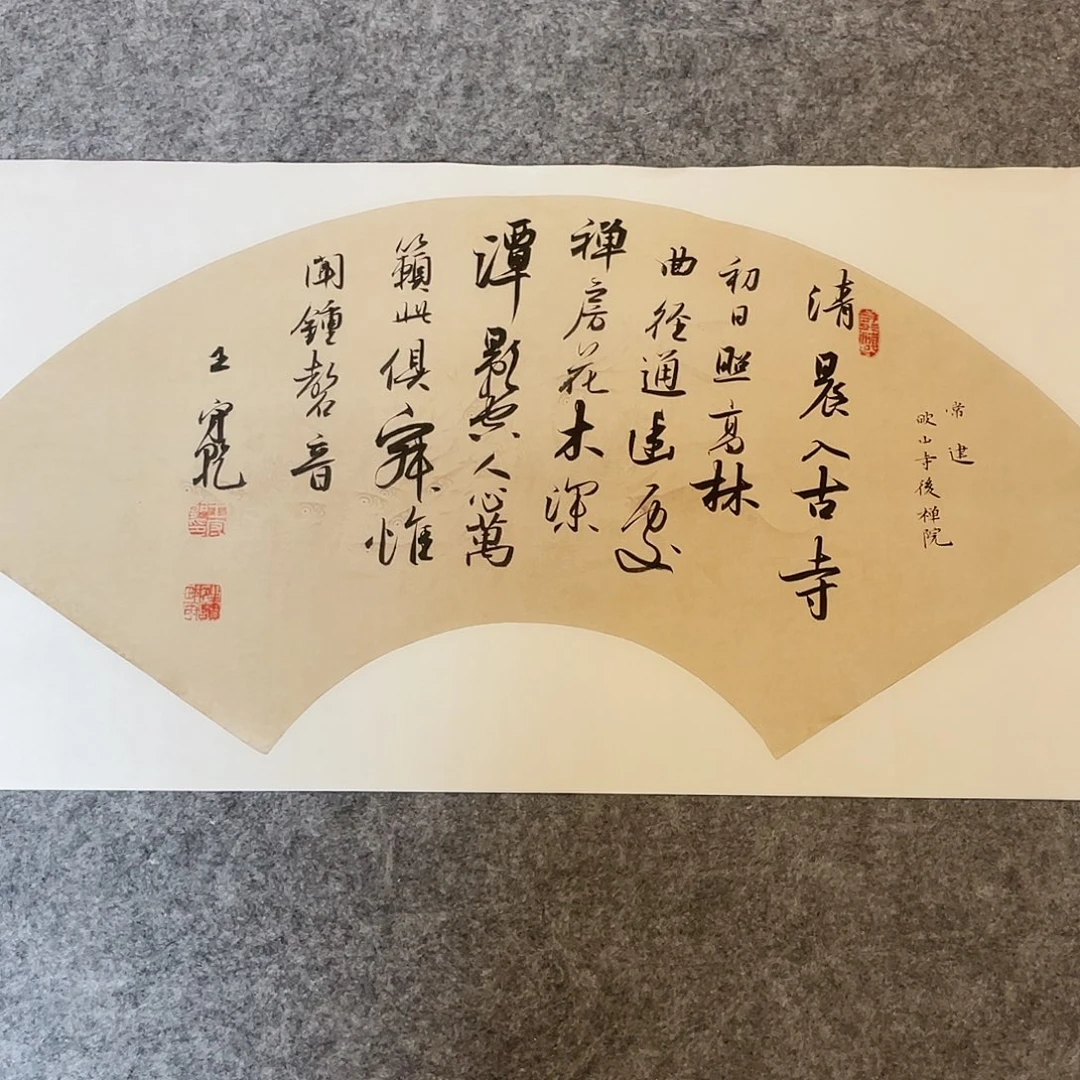 常建
破山寺後禅院
清晨入古寺
初日照高林
曲径通幽處
禅房花木深
潭影空人心萬
籟此俱寂惟
聞鍾磬音
王守乾